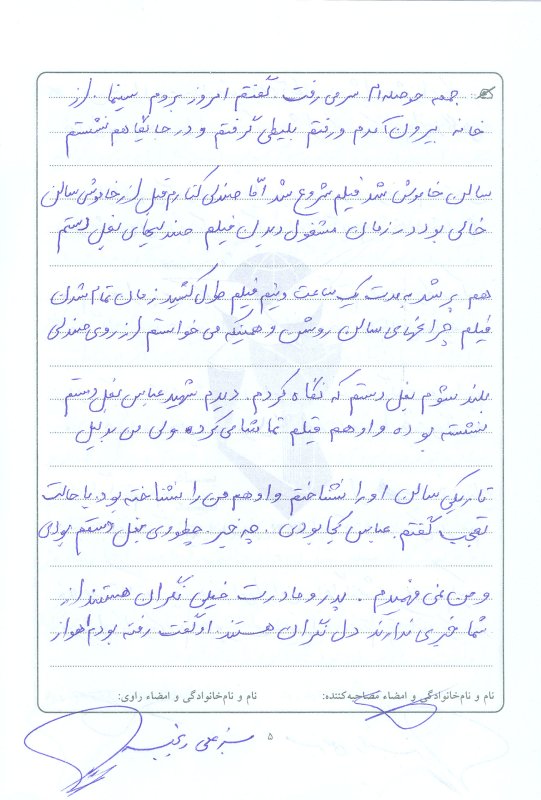 جمعه حوصله‌ام سر می رفت گفتم امروز بروم سینما . از
خانه بیرون آمدم و رفتم بلیطی گرفتم و در جایگاهم نشستم
سالن خاموش شد فیلم شروع شد اما صندلی کنارم قبل از خاموشی سالن
خالی بود در زمان مشغول دیدن فیلم صندلیهای بغل دستم
هم پر شد به مدت یک ساعت و نیم فیلم طول کشید زمان تمام شدن
فیلم چراغهای سالن روشن و همینکه می خواستم از روی صندلی
بلند شوم بغل دستم که نگاه کردم . دیدم شهید عباس بغل دستم
نشسته بوده و او هم فیلم تماشا می کرده ولی من بدلیل
تاریکی سالن او را نشناختم و او هم من را نشناخته بود با حالت
تعجب گفتم . عباس کجا بودی . چه خبر . چطوری بغل دستم بودی
و من نمی فهمیدم . پدر و مادرت خیلی نگران هستند از
شما خبری ندارند دل نگران هستند او گفت رفته بودم اهواز
نام و نام‌خانوادگی و امضاء مصاحبه‌کننده: نام و نام‌خانوادگی و امضاء راوی:
۵